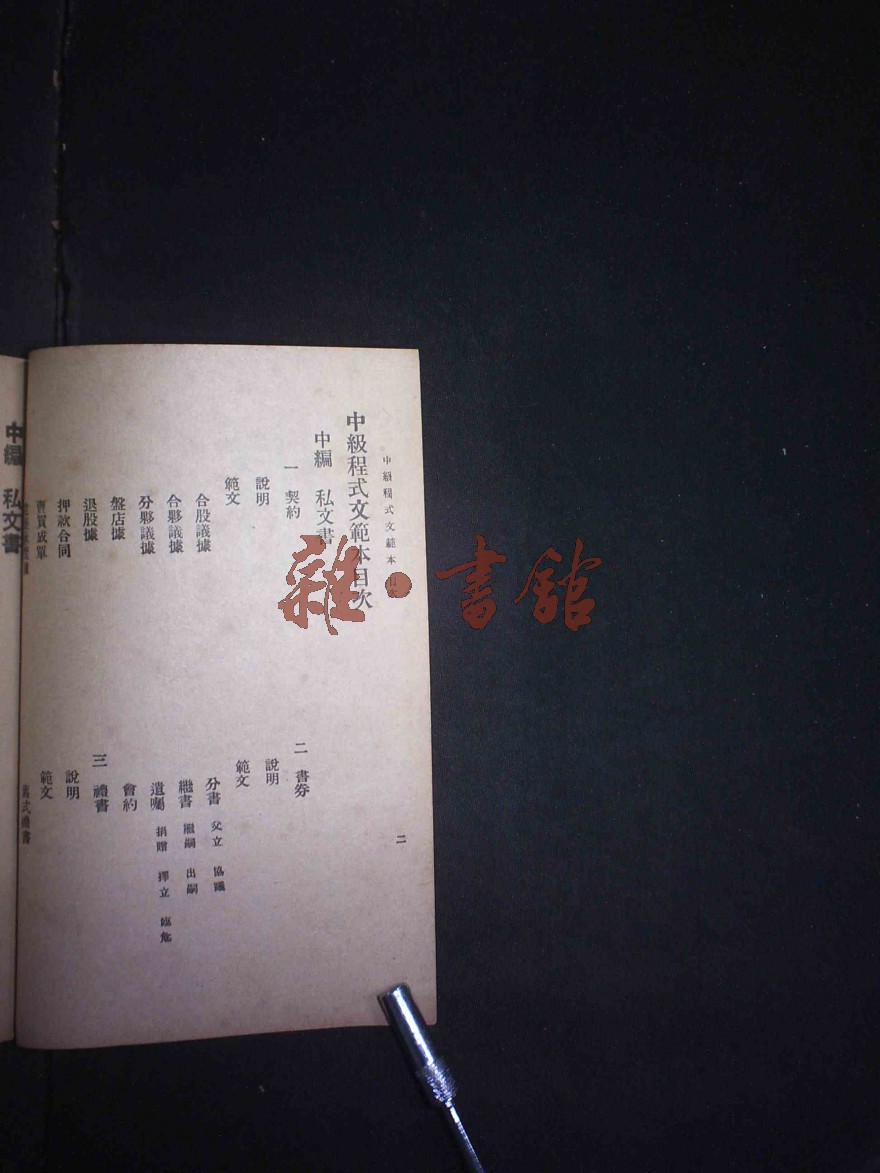 中級程式文範本目次
二
中級程式文範本目次
中編 私文書
一 契約
說明
範文
合股議據
合夥議據
分夥議據
盤店據
退股據
押款合同
賣買成單
二 書券
說明
範文
分書 父立 協議
繼書 繼嗣 出嗣
遺囑 捐贈 擇立 臨危
會約
三 禮書
說明
範文
舊式禮書
中編 私文書
雜·書館